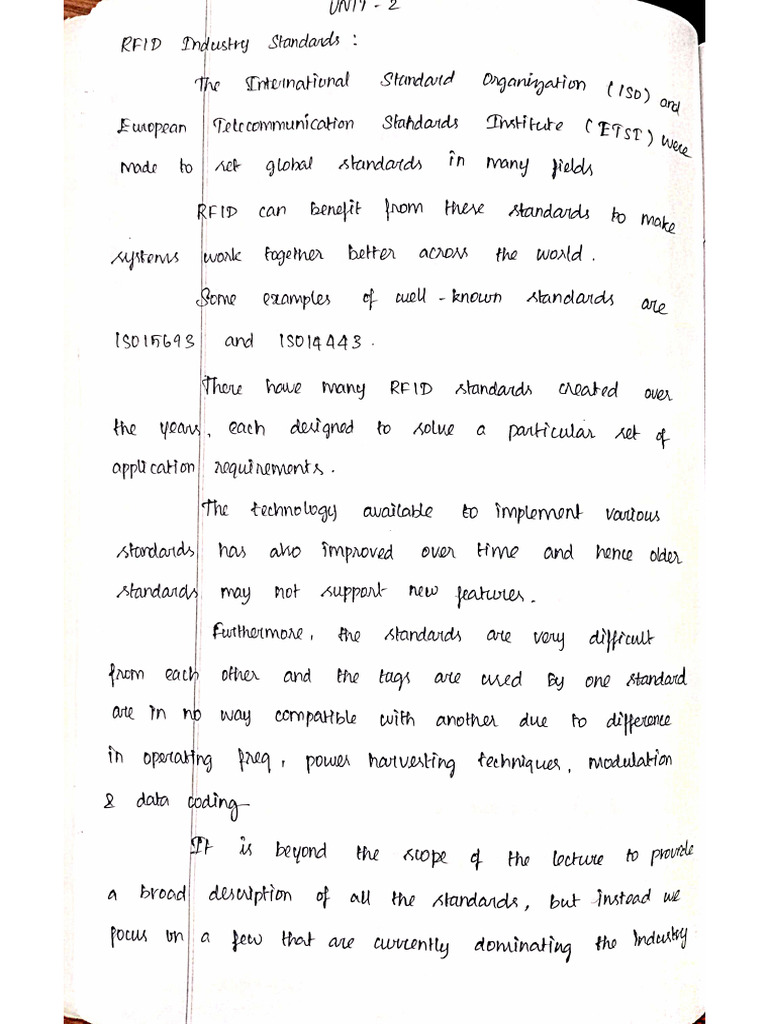 UNIT - 2
RFID Industry Standards :
The International Standard Organization (ISO) and
European Telecommunication Standards Institute (ETSI) were
made to set global standards in many fields
RFID can benefit from these standards to make
systems work together better across the world .
Some examples of well - known standards are
ISO15693 and ISO14443 .
There have many RFID standards created over
the years, each designed to solve a particular set of
application requirements .
The technology available to implement various
standards has also improved over time and hence older
standards may not support new features .
Furthermore, the standards are very difficult
from each other and the tags are used By one standard
are in no way compatible with another due to difference
in operating freq, power harvesting techniques, modulation
& data coding
It is beyond the scope of the lecture to provide
a broad description of all the standards, but instead we
focus on a few that are currently dominating the Industry